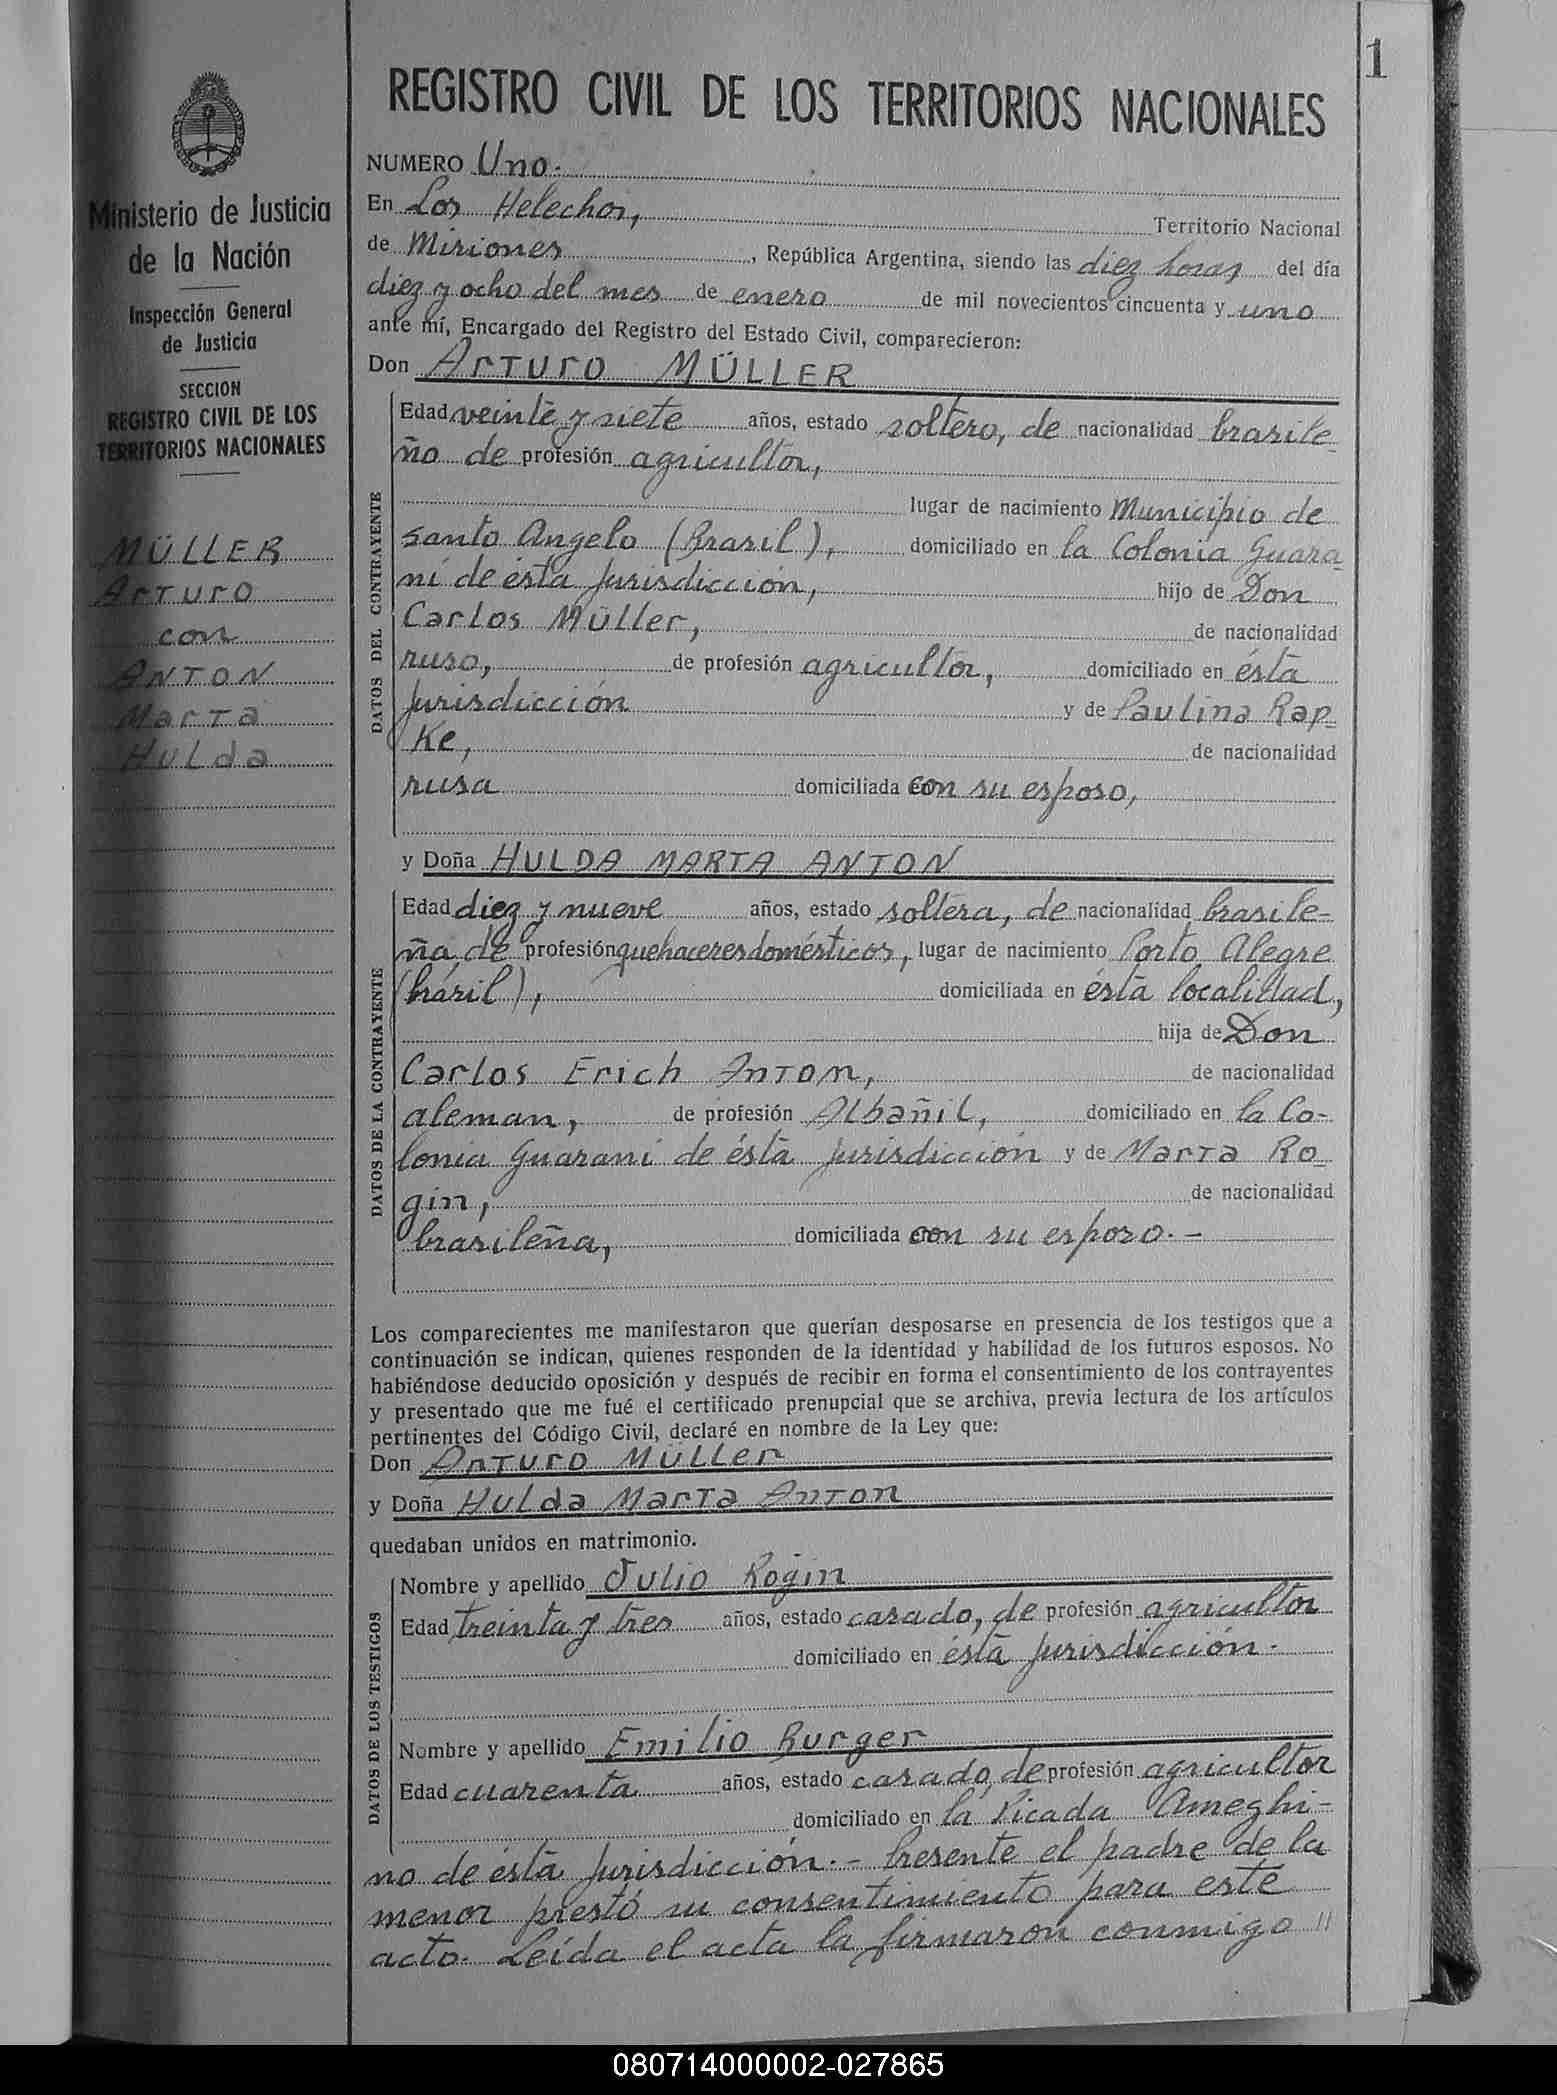 1
REGISTRO CIVIL DE LOS TERRITORIOS NACIONALES
Ministerio de Justicia
de la Nación
Inspección General
de Justicia
SECCION
REGISTRO CIVIL DE LOS
TERRITORIOS NACIONALES
MÜLLER
Arturo
con
ANTON
Marta
Hulda
NUMERO Uno.
En Los Helechos, Territorio Nacional
de Misiones, República Argentina, siendo las diez horas del día
diez y ocho del mes de enero de mil novecientos cincuenta y uno
ante mí, Encargado del Registro del Estado Civil, comparecieron:
Don Arturo MÜLLER
DATOS DEL CONTRAYENTE
Edad veinte y siete años, estado soltero, de nacionalidad brasile-
ño de profesión agricultor,
lugar de nacimiento Municipio de
Santo Angelo (Brasil), domiciliado en la Colonia Guara-
ní de ésta Jurisdicción, hijo de Don
Carlos Müller, de nacionalidad
ruso, de profesión agricultor, domiciliado en ésta
Jurisdicción y de Paulina Rap-
Ke, de nacionalidad
rusa domiciliada con su esposo,
y Doña HULDA MARTA ANTON
DATOS DE LA CONTRAYENTE
Edad diez y nueve años, estado soltera, de nacionalidad brasile-
ña de profesión quehaceres domésticos, lugar de nacimiento Porto Alegre
(brásil), domiciliada en ésta localidad,
hija de Don
Carlos Erich Anton, de nacionalidad
aleman, de profesión Albañil, domiciliado en la Co-
lonia Guaraní de ésta jurisdicción y de Marta Ro-
gin, de nacionalidad
brasileña, domiciliada con su esposo.-
Los comparecientes me manifestaron que querían desposarse en presencia de los testigos que a
continuación se indican, quienes responden de la identidad y habilidad de los futuros esposos. No
habiéndose deducido oposición y después de recibir en forma el consentimiento de los contrayentes
y presentado que me fué el certificado prenupcial que se archiva, previa lectura de los artículos
pertinentes del Código Civil, declaré en nombre de la Ley que:
Don Arturo Müller
y Doña Hulda Marta Anton
quedaban unidos en matrimonio.
DATOS DE LOS TESTIGOS
Nombre y apellido Julio Rogin
Edad treinta y tres años, estado casado, de profesión agricultor
domiciliado en ésta Jurisdicción.
Nombre y apellido Emilio Burger
Edad cuarenta años, estado casado, de profesión agricultor
domiciliado en la Picada Ameghi-
no de ésta Jurisdicción.- Presente el padre de la
menor prestó su consentimiento para este
acto. Leída el acta la firmaron conmigo //
080714000002-027865